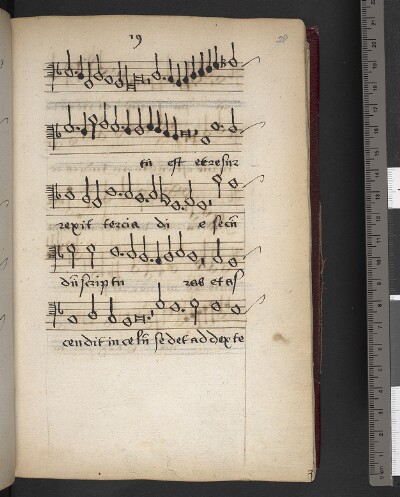 19
28
tu est et resur
rexit tercia di e secu
du scriptu ras et as
cendit in celu sedet ad dexte